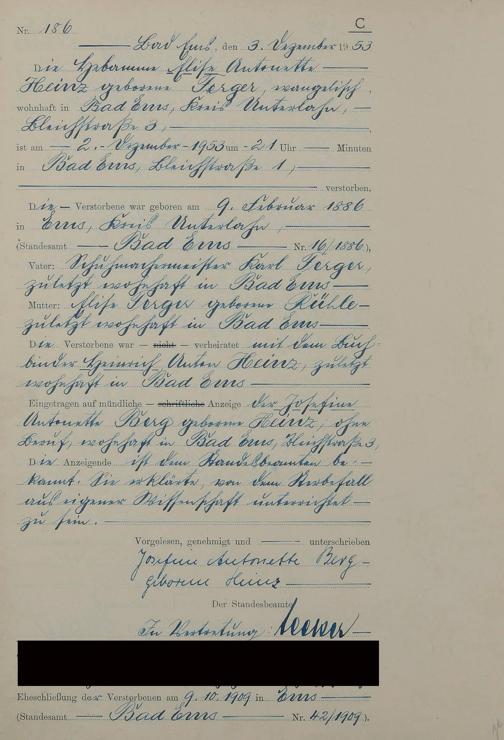 C
Nr. 186
Bad Ems, den 3. Dezember 1953
Die Hebamme Elise Antonette
Heinz geborene Terger, evangelisch,
wohnhaft in Bad Ems, Kreis Unterlahn,
Bleichstraße 3,
ist am 2. Dezember 1953 um 21 Uhr Minuten
in Bad Ems, Bleichstraße 1,
verstorben.
Die Verstorbene war geboren am 9. Februar 1886
in Ems, Kreis Unterlahn,
(Standesamt Bad Ems Nr. 16/1886),
Vater: Schuhmachermeister Karl Terger,
zuletzt wohnhaft in Bad Ems
Mutter: Elise Terger geborene Rühle
zuletzt wohnhaft in Bad Ems
Die Verstorbene war — nicht — verheiratet mit dem Buch-
binder Heinrich Anton Heinz, zuletzt
wohnhaft in Bad Ems
Eingetragen auf mündliche — schriftliche Anzeige der Josefine
Antonette Berg geborene Heinz, ohne
Beruf, wohnhaft in Bad Ems, Bleichstraße 3,
Die Anzeigende ist dem Standesbeamten be-
kannt. Sie erklärte, von dem Sterbefall
aus eigener Wissenschaft unterrichtet
zu sein.
Vorgelesen, genehmigt und unterschrieben
Josefine Antonette Berg
geborene Heinz
Der Standesbeamte
In Vertretung:
Eheschließung der Verstorbenen am 9.10.1909 in Ems
(Standesamt Bad Ems Nr. 42/1909).